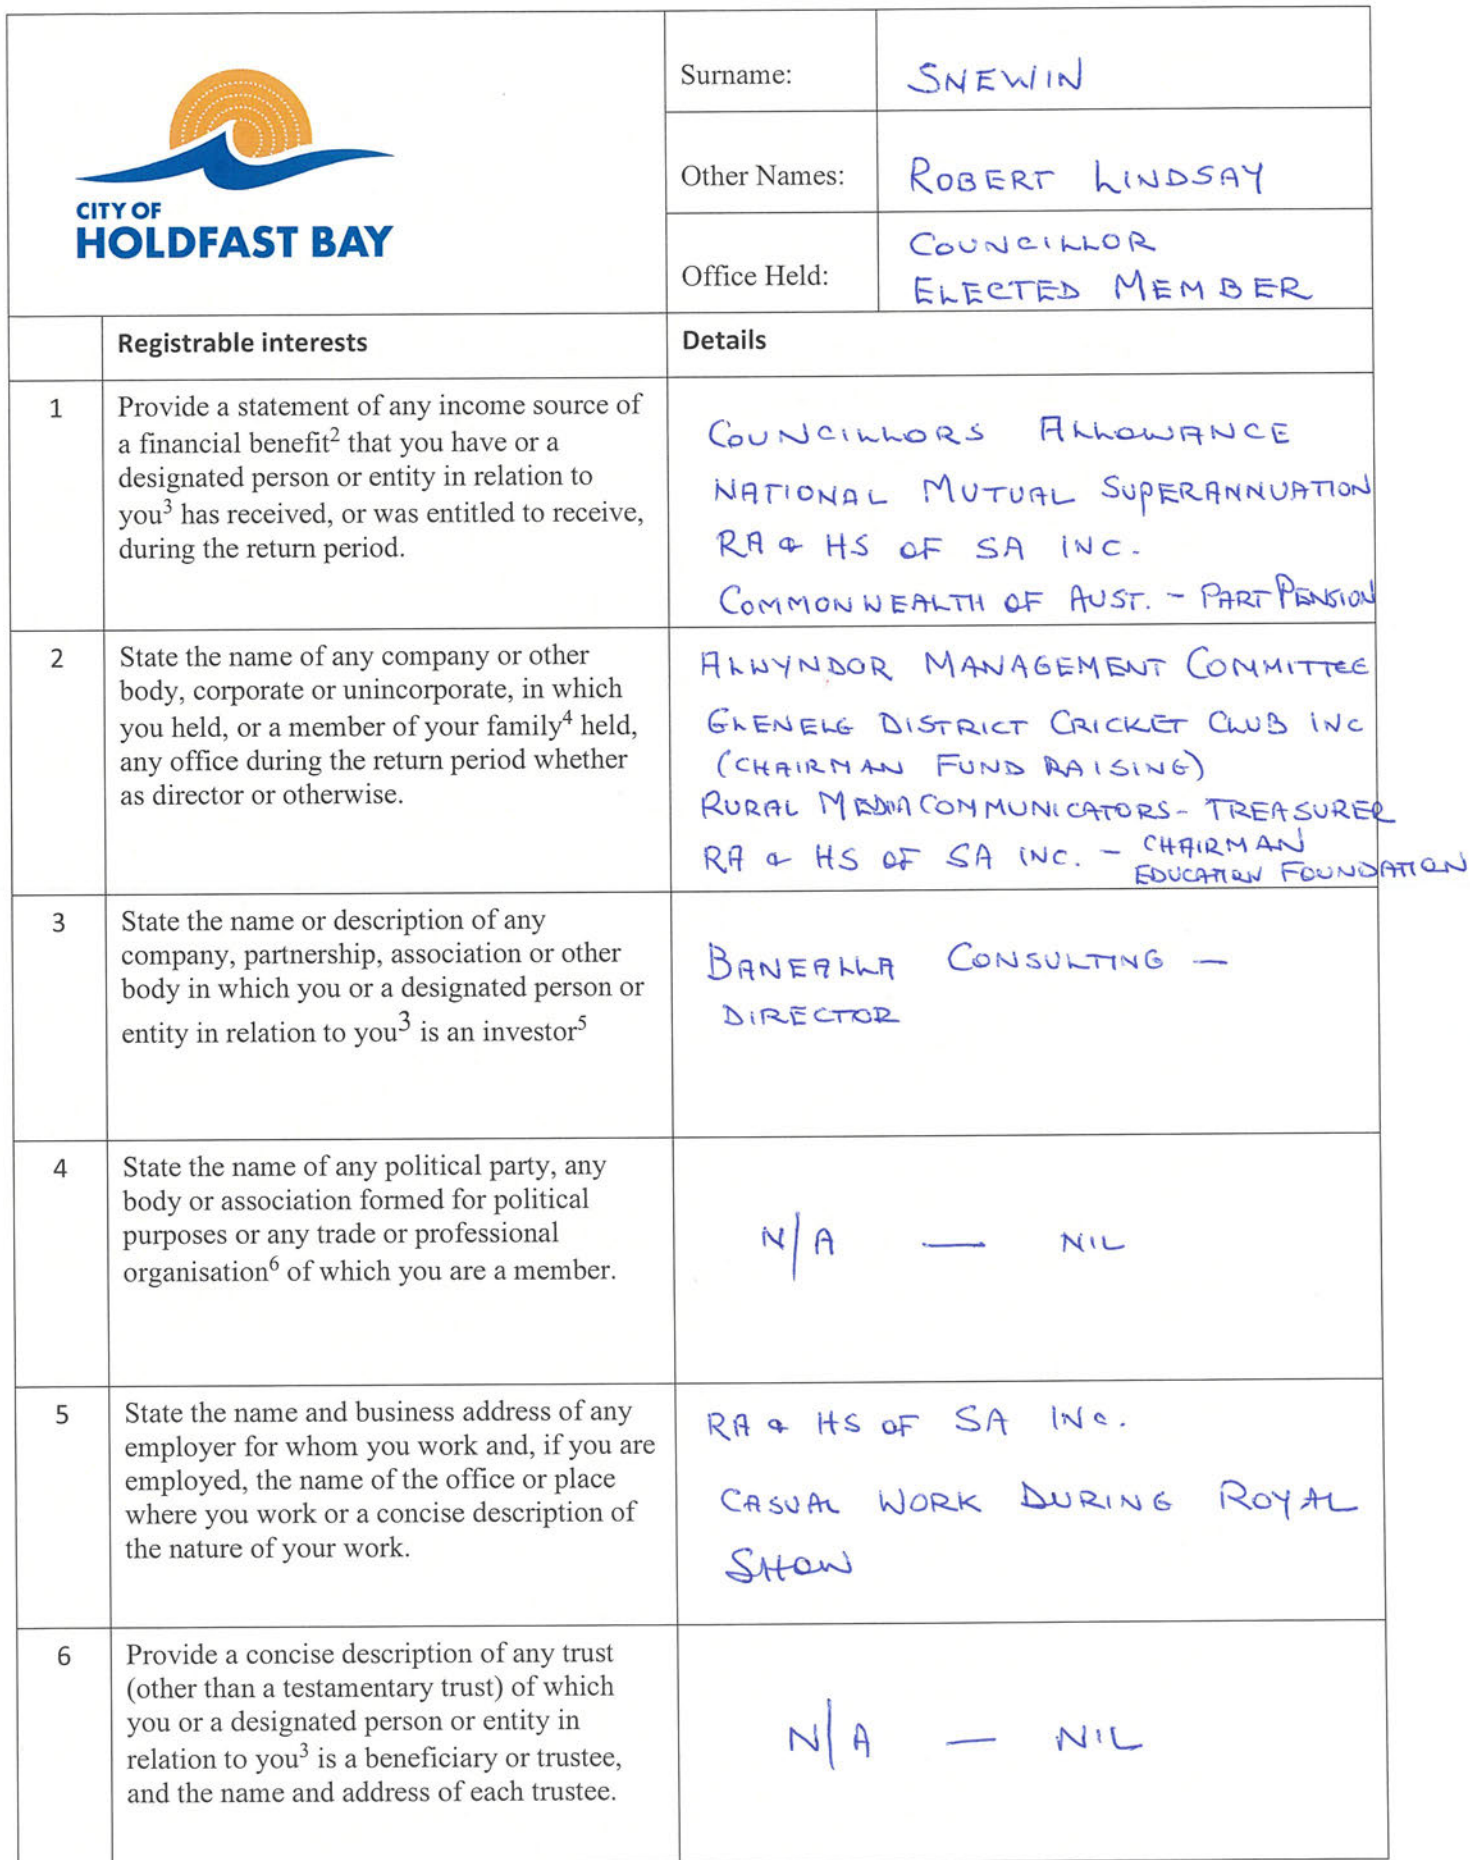 CITY OF
HOLDFAST BAY
Surname:
SNEWIN
Other Names:
ROBERT LINDSAY
Office Held:
COUNCILLOR
ELECTED MEMBER
Registrable interests
Details
1
Provide a statement of any income source of
a financial benefit2 that you have or a
designated person or entity in relation to
you3 has received, or was entitled to receive,
during the return period.
COUNCILLORS ALLOWANCE
NATIONAL MUTUAL SUPERANNUATION
RA & HS OF SA INC.
COMMONWEALTH OF AUST. - PART PENSION
2
State the name of any company or other
body, corporate or unincorporate, in which
you held, or a member of your family4 held,
any office during the return period whether
as director or otherwise.
ALWYNDOR MANAGEMENT COMMITTEE
GLENELG DISTRICT CRICKET CLUB INC
(CHAIRMAN FUND RAISING)
RURAL MEDIA COMMUNICATORS - TREASURER
RA & HS OF SA INC. - CHAIRMAN
EDUCATION FOUNDATION
3
State the name or description of any
company, partnership, association or other
body in which you or a designated person or
entity in relation to you3 is an investor5
BANEALLA CONSULTING —
DIRECTOR
4
State the name of any political party, any
body or association formed for political
purposes or any trade or professional
organisation6 of which you are a member.
N/A — NIL
5
State the name and business address of any
employer for whom you work and, if you are
employed, the name of the office or place
where you work or a concise description of
the nature of your work.
RA & HS OF SA INC.
CASUAL WORK DURING ROYAL
SHOW
6
Provide a concise description of any trust
(other than a testamentary trust) of which
you or a designated person or entity in
relation to you3 is a beneficiary or trustee,
and the name and address of each trustee.
N/A — NIL